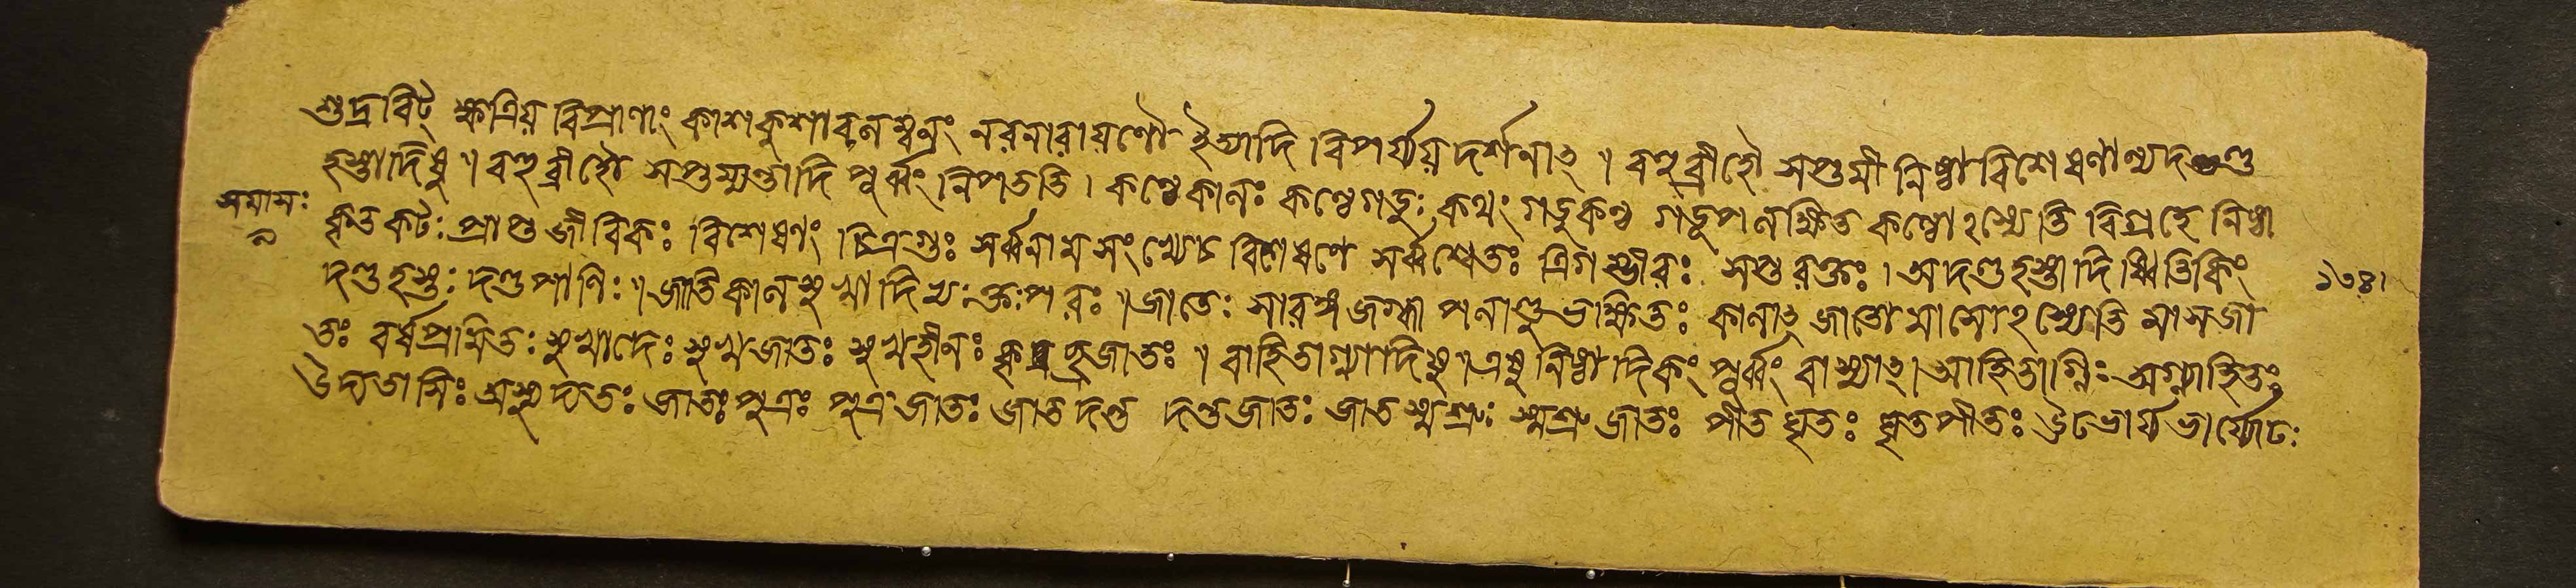 শুদ্রবিট্ ক্ষত্রিয় বিপ্রাণাং কাশকুশাবলম্বনং নরনারায়ণৌ ইত্যাদি বিপর্য্যয়দর্শনাৎ ৷৷ বহুব্রীহৌ সপ্তমী নিষ্ঠা বিশেষণান্যদণ্ড
হস্তাদিষু ৷৷ বহুব্রীহৌ সপ্তম্যন্তাদি পূর্ব্বং নিপততি । কণ্ঠেকালঃ কণ্ঠেগডুঃ কথং গডুকণ্ঠ গডুপলক্ষিত কণ্ঠোঽস্যেতি বিগ্রহে নিষ্ঠা
সমাসঃ
কৃতকটঃ প্রাপ্তজীবিকঃ বিশেষণং চিত্রগুঃ সর্ব্বনামসংখ্যেচ বিশেষণে সর্ব্বশ্বেতঃ ত্রিগম্ভীরঃ সপ্তরক্তঃ । অদণ্ডহস্তাদিষ্বিতিকিং
১৩৪।
দণ্ডহস্তঃ দণ্ডপাণিঃ ৷৷ জাতিকালসুখাদিভ্যঃ ক্তঃপরঃ ৷৷ জাতেঃ সারঙ্গজগ্ধী পলাণ্ডুভক্ষিতঃ কালাৎ জাতো মাসোঽস্যেতি মাসজা
তঃ বর্ষপ্রমিতঃ সুখাদেঃ সুখজাতঃ সুখহীনঃ কৃচ্ছ্রজাতঃ ৷৷ বাহিতাগ্ন্যাদিষু ৷৷ এষু নিষ্ঠাদিকং পূর্ব্বং বাস্যাৎ । আহিতাগ্নিঃ অগ্ন্যাহিতঃ
উদ্যতাসিঃ অস্যুদ্যতঃ জাতঃপুত্রঃ পুত্রজাতঃ জাতদন্ত দন্তজাতঃ জাতশ্মশ্রুঃ শ্মশ্রুজাতঃ পীতঘৃতঃ ঘৃতপীতঃ ঊঢভার্য্য ভার্য্যোঢঃ